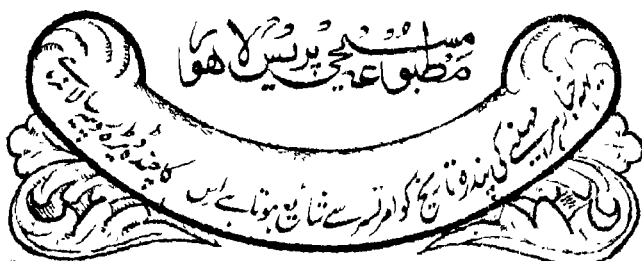 مطبوعہ مسیحی پریس لاہور
ہر مہینے کی پندرہ تاریخ کو امرتسر سے شائع ہوتا ہے اس کا چندہ ڈیڑھ روپیہ سالانہ ہے